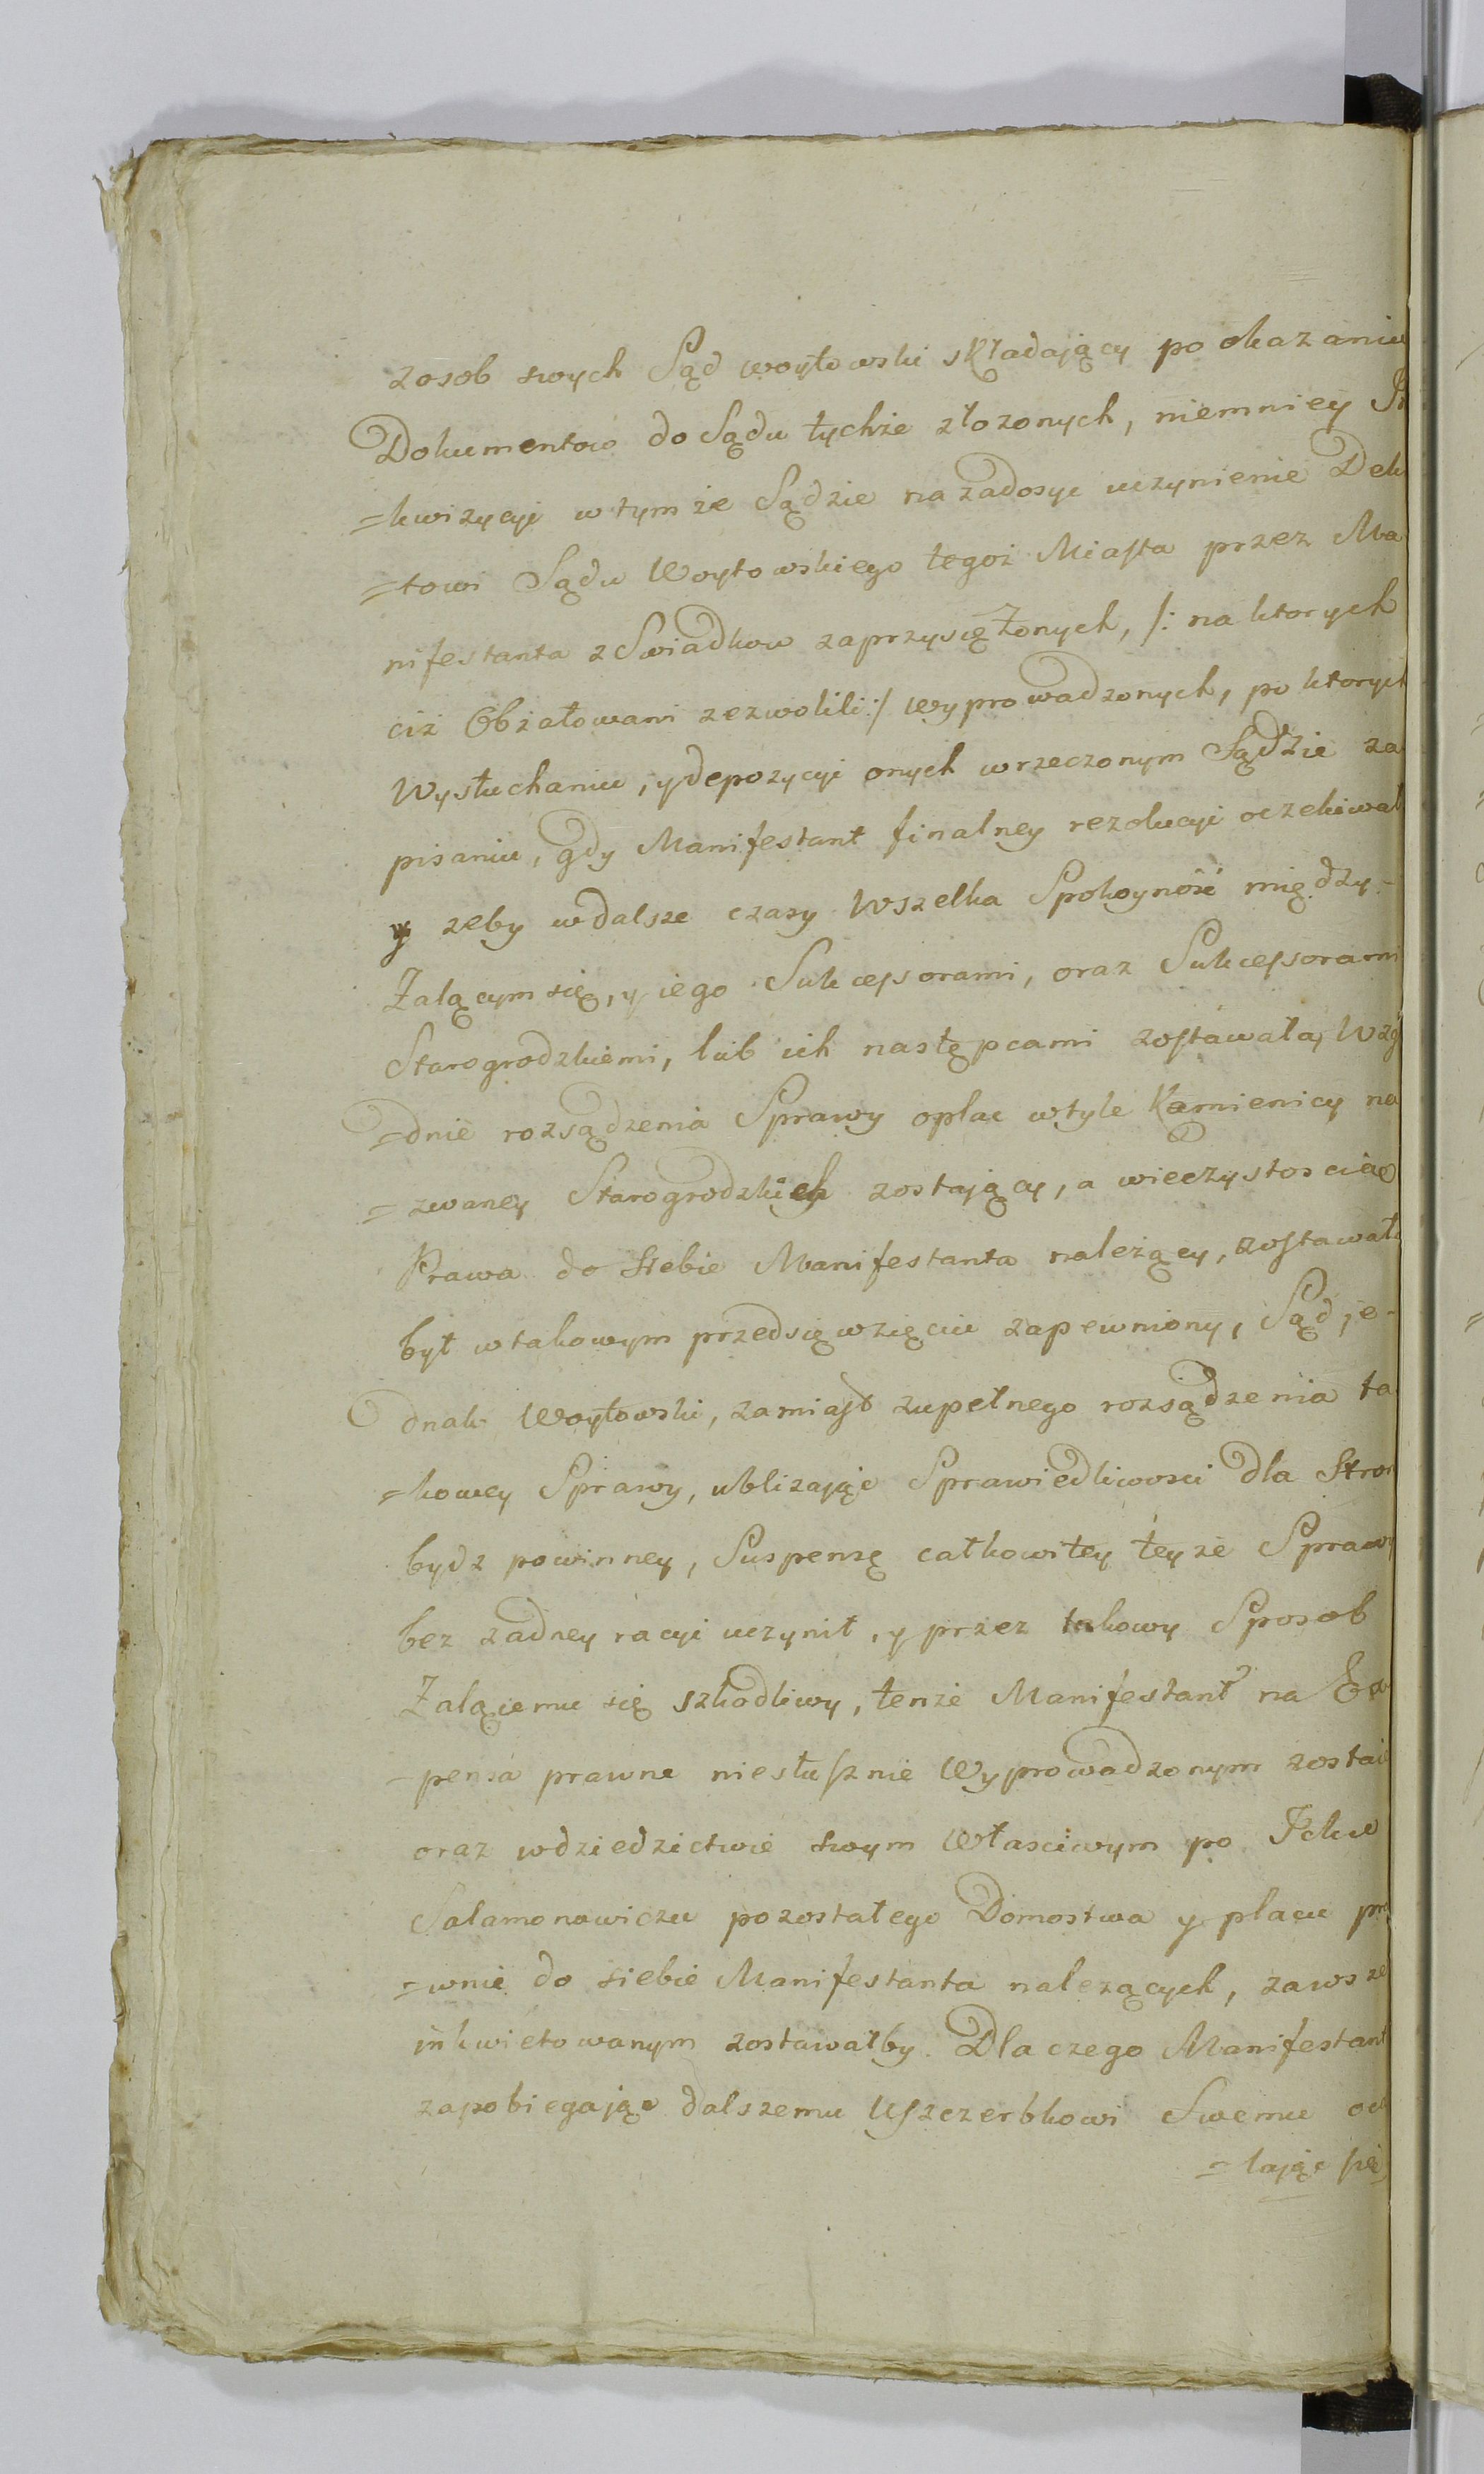 zosob swych Sąd woytowski składaiący po okazaniu
Dokumentow do Sądu tychże złozonych, niemniey
=kwizycyi wtymże Sądzie nazadosyc uczynienie Dek
=towi Sądu Woytowskiego tegoż Miasta przez Ma
nifestanta z Swiadkow zaprzysiężonych, /: na ktorych
ciż Obżałowani zezwolili :/ wyprowadzonych, po ktorych
Wysłuchaniu, y depozycyi onych wrzeczonym Sądzie za
pisaniu, gdy Manifestant finalney rezolucyi oczekiwał
y zeby wdalsze czasy Wszelka Spokoyność między-
Żalącym się, y iego Sukcessorami, oraz Sukcessorami
Starogrodzkiemi, lub ich następcami zostawała, Wzg
=dnie rozsądzenia Sprawy oplac wtyle Kamienicy na
=zwaney Starogrodzkich zostaiący, a wieczystoscią
Prawa do Siebie Manifestanta należący, zostawał
był wtakowym przedsięwzięciu zapewniony, Sąd je-
dnak Woytowski, zamiast zupełnego rozsądzenia ta
=kowey Sprawy, ubliżając Sprawiedliwosci dla Stron
bydz powinney, Suspensę całkowitey teyże Sprawy
bez zadney racyi uczynił, y przez takowy Sposob
Żalącemu się szkodliwy, tenże Manifestant na Ex
-pensa prawne niesłusznie Wyprowadzonym zostaie
oraz wdziedzictwie swym Własciwym po Icku
Salamonowiczu pozostałego Domostwa y placu pra
=wnie do siebie Manifestanta nalezących, zawsze
inkwietowanym zostawałby. Dlaczego Manifestant
zapobiegając dalszemu Uszczerbkowi Swemu oca
=lając się